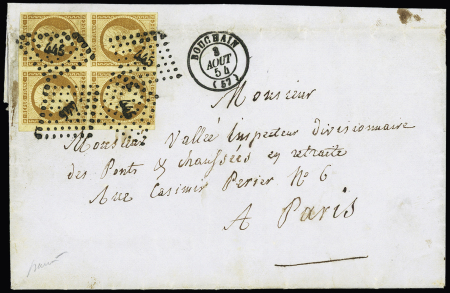 BOUCHAIN
3
AOUT
54
(57)
445
445
Monsieur
Monsieur Vallée Inspecteur divisionnaire
des Ponts & chaussées en retraite
Rue Casimir Perier No 6
A Paris